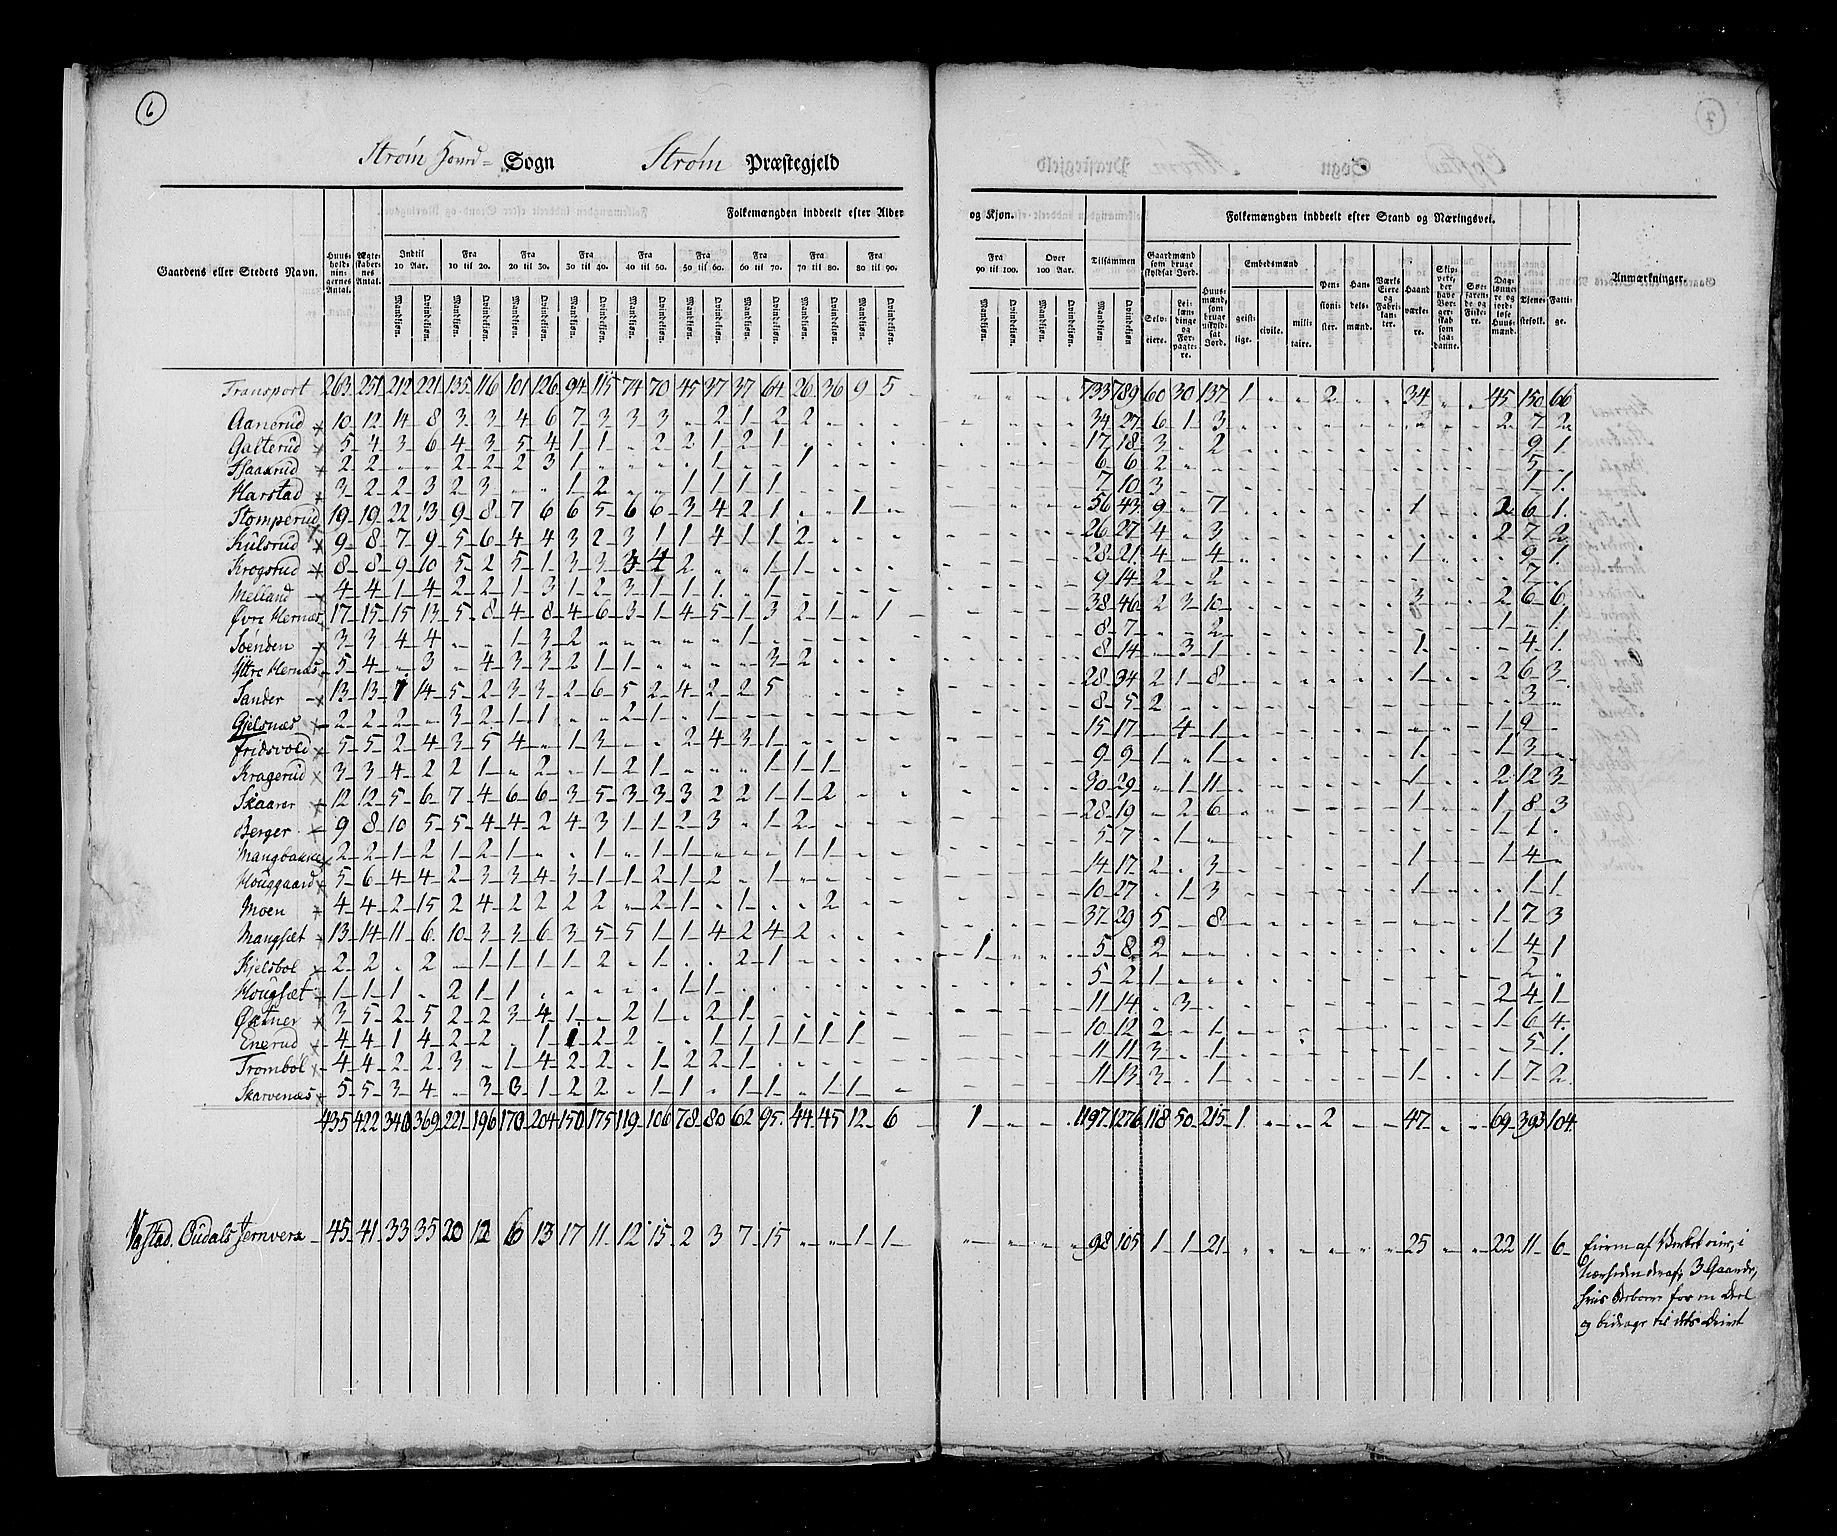 6
7
Strøm Hoved- Sogn Strøm Præstegjeld
Gaardens eller Stedets Navn.
Huus-holdnin-gernes Antal.
Ægte-skaber-nes Antal.
Folkemængden inddeelt efter Alder og Kjøn.
Folkemængden inddeelt efter Stand og Næringsvei.
Indtil 10 Aar. Fra 10 til 20. Fra 20 til 30. Fra 30 til 40. Fra 40 til 50. Fra 50 til 60. Fra 60 til 70. Fra 70 til 80. Fra 80 til 90. Fra 90 til 100. Over 100 Aar. Tilsammen
Mandkjøn. Qvindekjøn.
Gaardmænd som bruge skyldsat Jord. Selv-eiere. Lei-læn-dinge og For-pagte-re.
Huus-mænd, som bruge uskyld-sat Jord.
Embedsmænd geist-lige. civile. mili-taire.
Pen-sioni-ster. Han-dels-mænd. Værks Eiere og Fabri-kan-ter. Haand værke-re.
Anmærkninger.
Transport 263 251 212 221 135 116 101 126 94 115 74 70 45 37 37 64 26 36 9 5 733 789 60 30 137 1 2 34 45 150 66
Aanerud 10 12 14 8 3 3 4 6 7 3 3 3 2 1 2 2 34 27 6 1 3 2 7 2
Galterud 5 4 3 6 4 3 5 4 1 1 2 2 1 2 1 17 18 3 2 9 1
Haaxrud 2 2 2 2 2 3 1 1 1 6 6 2 5
Harstad 3 2 2 3 2 3 1 2 1 1 1 1 7 10 3 1 1
Stomperud 19 19 22 13 9 8 7 6 6 5 6 6 3 4 2 1 1 56 43 9 7 1 2 6 1
Kulsrud 9 8 7 9 5 6 4 4 3 2 3 1 1 4 1 1 2 26 27 4 3 2 7 2
Krogstud 8 8 9 10 5 2 5 1 3 3 3 4 2 1 1 28 21 4 4 1 9 1
Melland 4 4 1 4 2 2 1 3 1 2 3 1 1 1 1 9 14 2 2 7
Øvre Hernæs 17 15 15 13 5 8 4 8 4 6 3 1 4 5 1 3 2 1 1 38 46 2 3 10 3 2 6 6
Soenden 3 3 4 4 1 3 2 1 8 7 2 1 1
Yttre Hernæs 5 4 3 4 3 3 2 1 1 3 2 8 14 3 1 1 4 1
Sander 13 13 7 14 5 2 3 3 2 6 5 2 4 2 2 5 28 34 2 1 8 1 2 6 3
Gjelsnæs 2 2 2 3 2 1 1 2 1 1 8 5 2 3
Fridsvold 5 5 2 4 3 5 4 1 3 2 4 3 1 15 17 4 1 1 9
Kragerud 3 3 4 2 2 1 2 1 2 1 1 1 1 9 9 1 1 1 1 3
Skaarer 12 12 5 6 7 4 6 6 3 5 3 3 3 2 2 1 1 2 30 29 1 11 1 2 12 3
Berger 9 8 10 5 5 4 4 2 4 3 1 1 2 3 1 2 28 19 2 6 1 1 8 3
Mangbakne 2 2 1 2 1 2 1 1 1 1 1 1 5 7 1 1 1
Houggaard 5 6 4 4 2 3 3 4 3 1 1 2 1 2 1 14 17 2 3 1 1 4
Moen 4 4 2 15 2 4 2 2 2 2 2 1 1 2 10 27 1 3 1 1 1
Mangsæt 13 14 11 6 10 3 3 6 3 5 5 1 1 4 2 4 2 37 29 5 8 1 7 3
Kjelsbol 2 2 2 1 1 1 1 2 1 2 1 1 5 8 2 1 4 1
Hougsæt 1 1 1 2 1 1 1 1 5 2 1 2
Øxtner 3 5 2 5 2 2 3 4 1 2 1 2 1 11 14 3 2 4 1
Enerud 4 4 1 4 2 2 1 1 2 2 1 1 1 1 1 1 10 12 2 1 1 6 4
Trombol 4 4 2 2 3 1 4 2 2 1 2 2 1 11 11 3 1 5 1
Skarvenæs 5 5 3 4 3 3 1 2 2 1 1 1 1 1 1 11 13 3 1 1 1 7 2
435 422 340 369 221 196 170 204 150 175 119 106 78 80 62 95 44 45 12 6 1 1197 1276 118 50 215 1 2 47 69 393 104
Oudals Jernverx 45 41 33 35 20 12 6 13 17 11 12 15 2 3 7 15 1 1 98 105 1 1 21 25 22 11 6
Eieren af Verket eier, i
Nærheden deraf, 3 Gaarde,
hvis Beboere for en Deel
og bidrage til dets Drivt